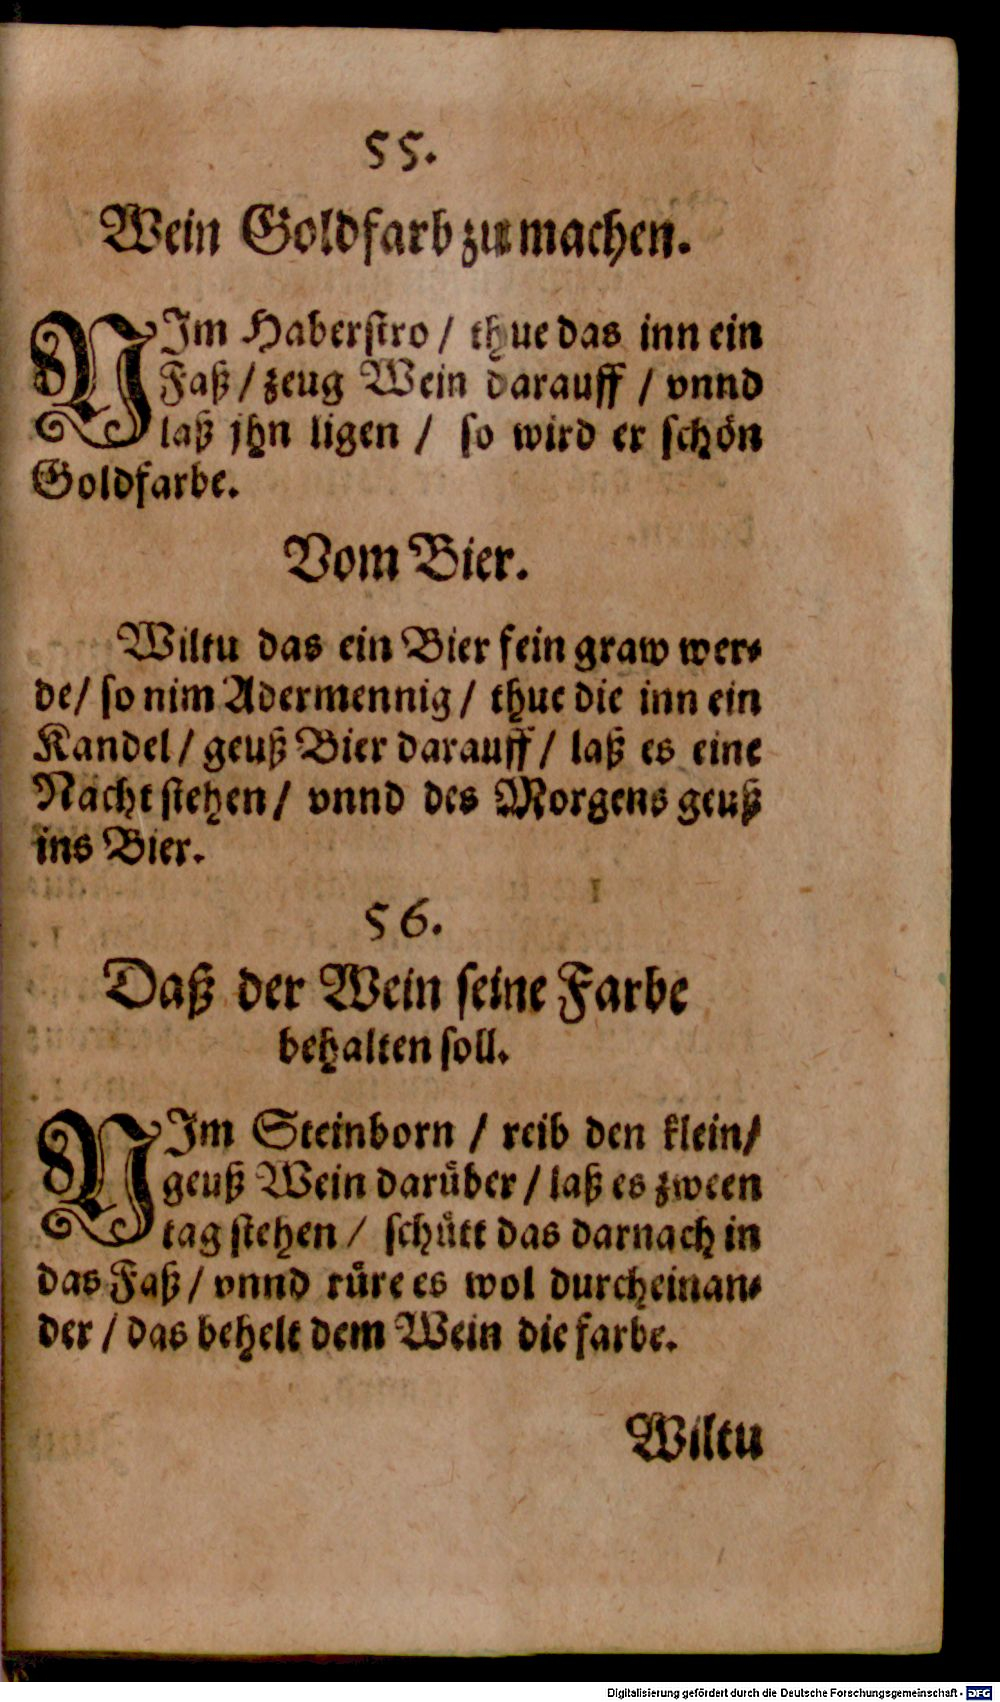 55.
Wein Goldfarb zu machen.
NIm Haberstro / thue das inn ein
Faß / zeug Wein darauff / vnnd
laß jhn ligen / so wird er schön
Goldfarbe.
Vom Bier.
Wiltu das ein Bier fein graw wer⸗
de / so nim Adermennig / thue die inn ein
Kandel / geuß Bier darauff / laß es eine
Nacht stehen / vnnd des Morgens geuß
ins Bier.
56.
Daß der Wein seine Farbe
behalten soll.
NIm Steinborn / reib den klein /
geuß Wein darüber / laß es zween
tag stehen / schütt das darnach in
das Faß / vnnd rüre es wol durcheinan⸗
der / das behelt dem Wein die farbe.
Wiltu
Digitalisierung gefördert durch die Deutsche Forschungsgemeinschaft - DFG